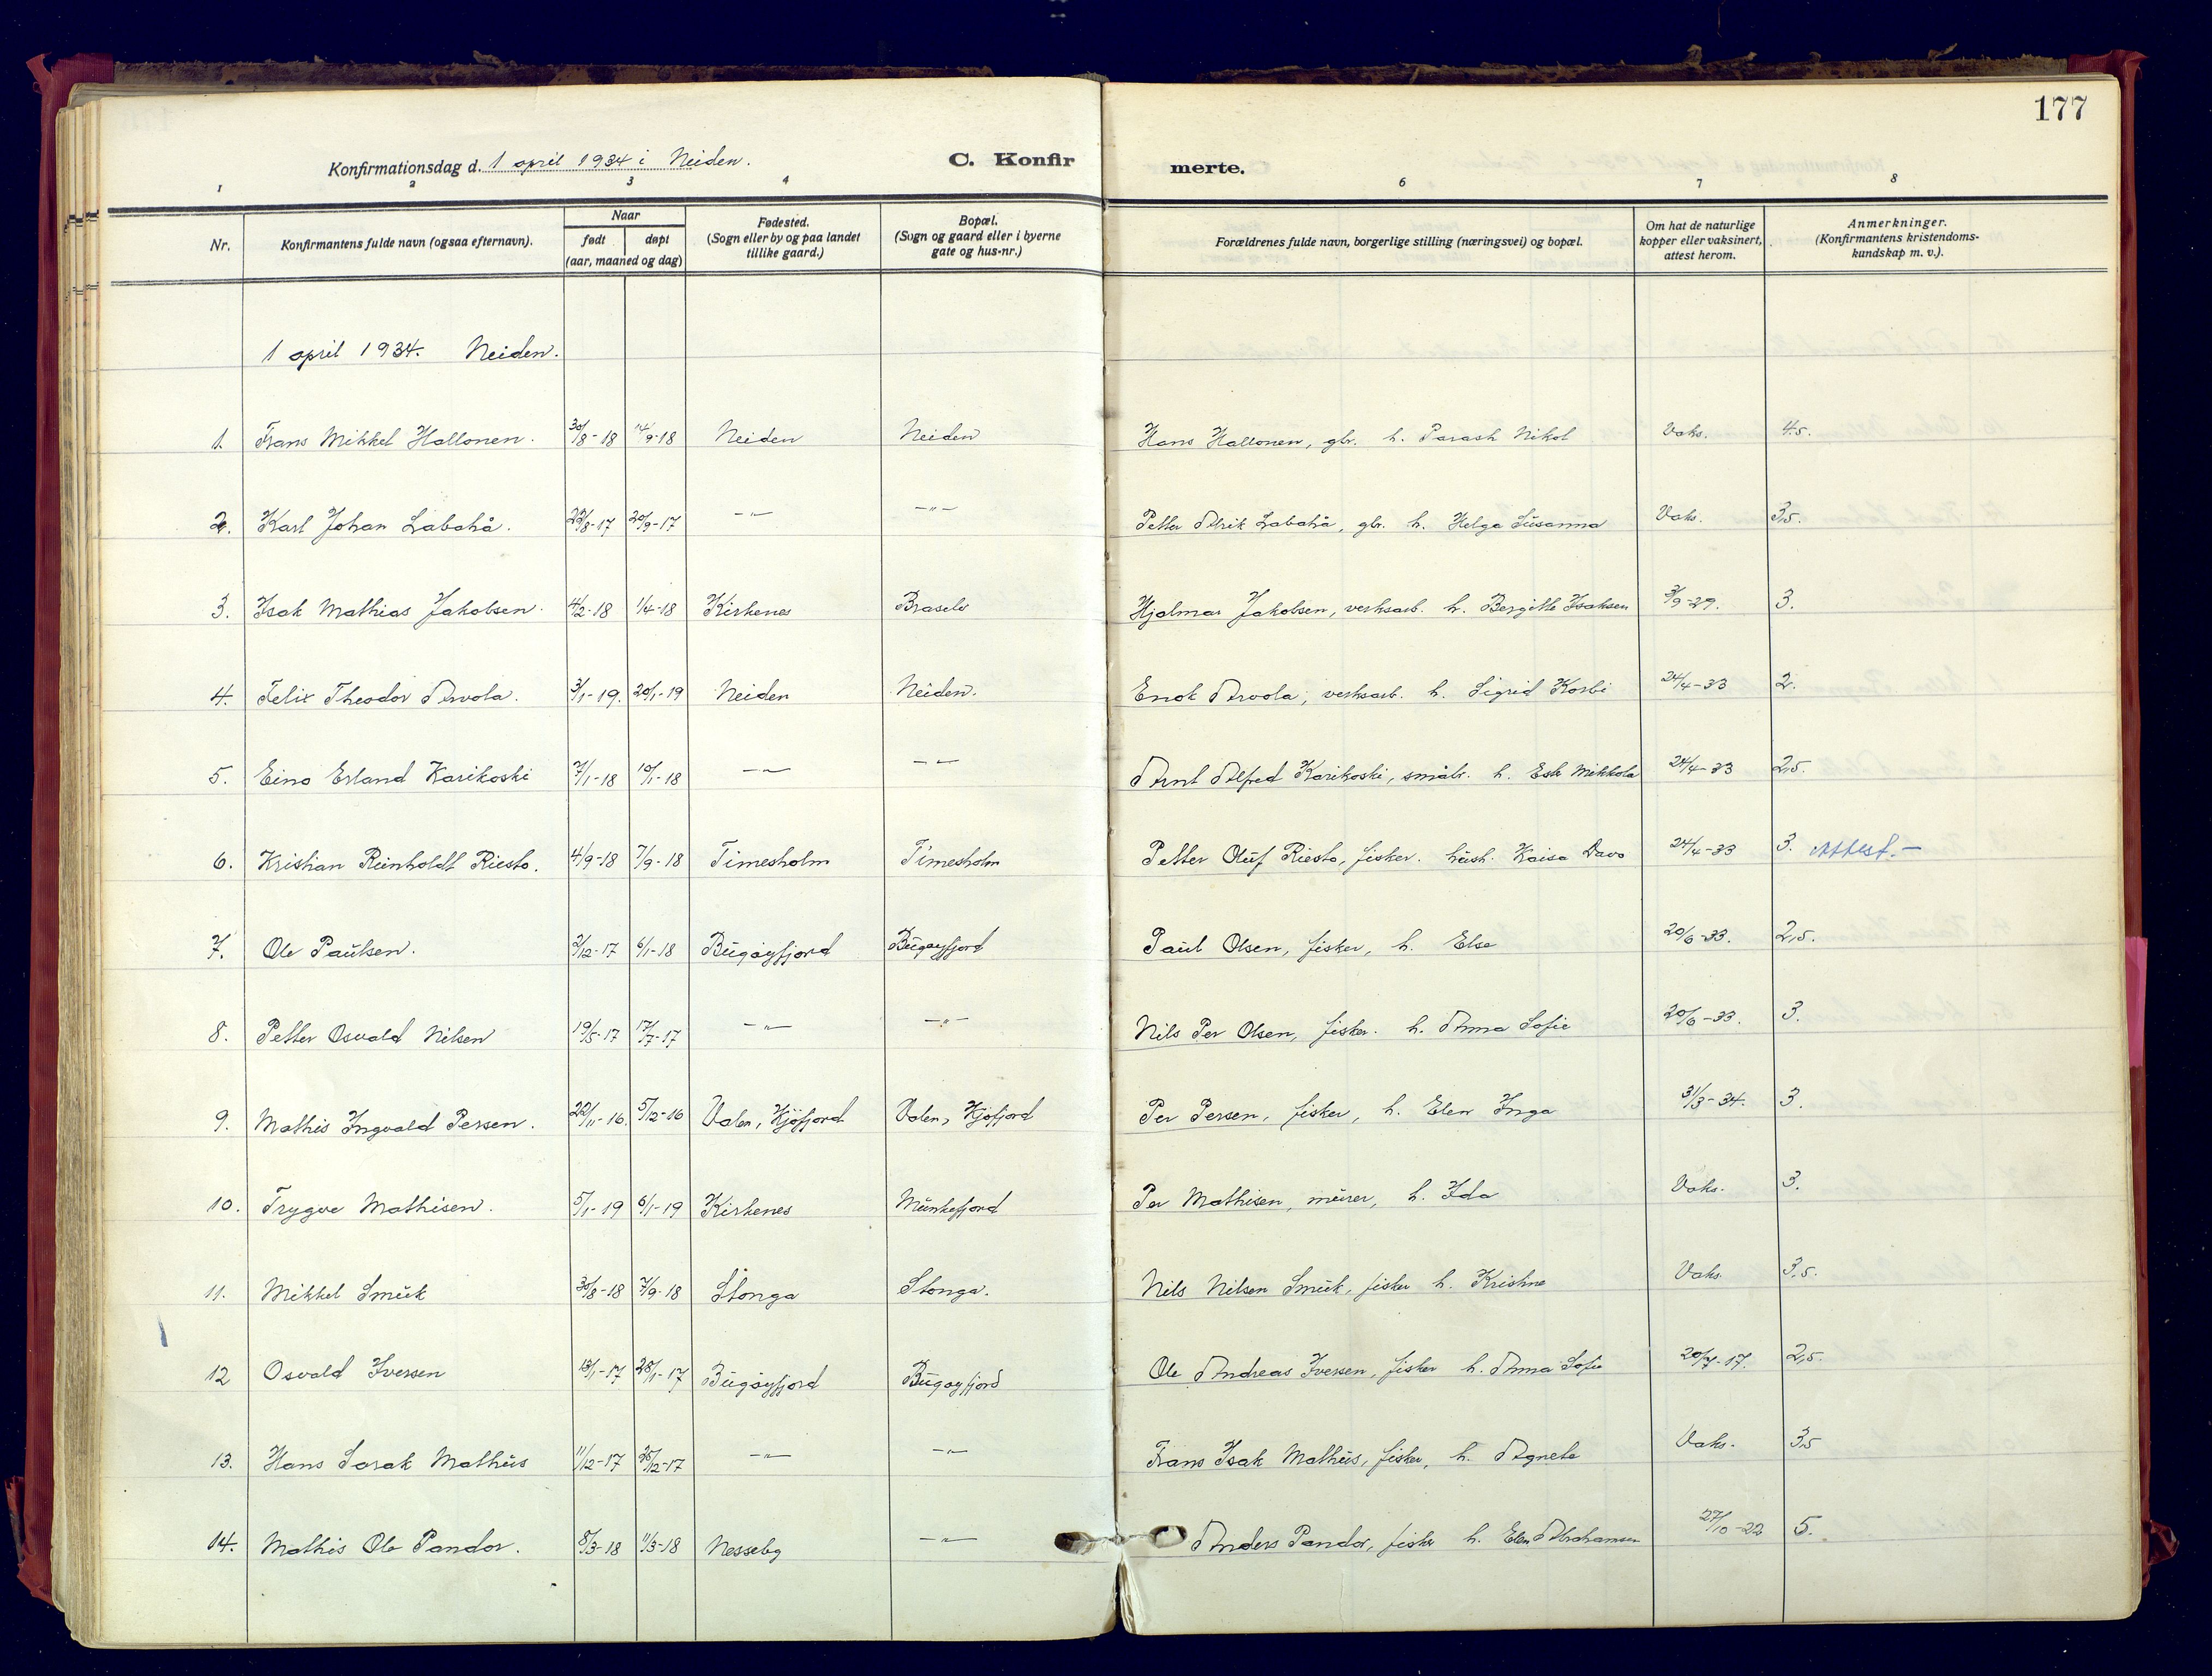 177
Konfirmationsdag d. 1 april 1934 i Neiden. C. Konfirmerte.
1 2 3 4 6 7 8
Nr. Konfirmantens fulde navn (ogsaa efternavn). Naar født døpt (aar, maaned og dag) Fødested. (Sogn eller by og paa landet tillike gaard.) Bopæl. (Sogn og gaard eller i byerne gate og hus-nr.) Forældrenes fulde navn, borgerlige stilling (næringsvei) og bopæl. Om hat de naturlige kopper eller vaksinert, attest herom. Anmerkninger. (Konfirmantens kristendoms-kundskap m. v.).
1 april 1934. Neiden.
1. Frans Mikkel Hallonen. 30/8-18 14/9-18 Neiden Neiden Hans Hallonen, gbr. h. Parash Nikol Vaks. 4.5.
2. Karl Johan Labahå. 22/8-17 20/9-17 -"- -"- Petter Arik Labahå, gbr. h. Helga Susanna Vaks. 3,5.
3. Isak Mathias Jakobsen. 4/2-18 1/4-18 Kirkenes Braselv Hjalmar Jakobsen, verksarb. h. Bergitte Isaksen 3/9-29. 3.
4. Felix Theodor Arvola. 3/1-19. 20/1-19 Neiden Neiden. Enok Arvola, verksarb. h. Sigrid Korbi 24/4-33 2.
5. Eino Erland Karikoski 7/1-18 10/1-18 -"- -"- Arnt Alfred Karikoski, småbr. h. Este Mikkola 24/4-33 2,5.
6. Kristian Reinholdt Riesto. 4/9-18 7/9-18 Timesholm Timesholm Petter Oluf Riesto, fisker. hush. Kaisa Davo 24/4-33 3. Attest.-
7. Ole Paulsen. 2/12-17 6/1-18 Bugøyfjord Bugøyfjord Paul Olsen, fisker, h. Else 20/6-33. 2,5.
8. Petter Osvald Nilsen 19/5-17 17/7-17 -"- -"- Nils Per Olsen, fisker. h. Anna Sofie 20/6-33. 3.
9. Mathis Ingvald Persen. 22/11-16. 5/12-16 Valen, Kjøfjord Valen, Kjøfjord Per Persen, fisker, h. Elen Inga 31/3-34. 3.
10. Trygve Mathisen. 5/1-19 6/1-19 Kirkenes Munkefjord Per Mathisen, murer, h. Ida Vaks. 3.
11. Mikkel Smuk 30/8-18 7/9-18 Stonga Stonga. Nils Nilsen Smuk, fisker h. Kristine Vaks. 3,5.
12 Osvald Iversen 13/1-17 28/1-17 Bugøyfjord Bugøyfjord Ole Andreas Iversen, fisker h. Anna Sofie 20/7-17. 2,5.
13. Hans Sarak Mathüs 11/12-17 25/12-17 -"- -"- Frans Isak Mathüs, fisker, h. Agnete Vaks. 3,5
14. Mathis Ole Pandor. 8/3-18 11/3-18 Nesseby -"- Anders Pandor, fisker h. Elen Abrahamsen 27/10-22 5.